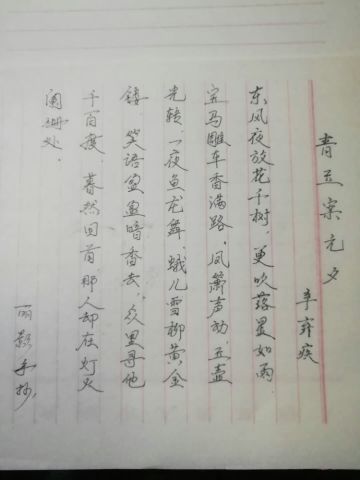 青玉案元夕
辛弃疾
东风夜放花千树，更吹落星如雨
宝马雕车香满路，凤箫声动，玉壶
光转，一夜鱼龙舞，蛾儿雪柳黄金
缕，笑语盈盈暗香去，众里寻他
千百度，蓦然回首，那人却在灯火
阑珊处。
丽影手抄